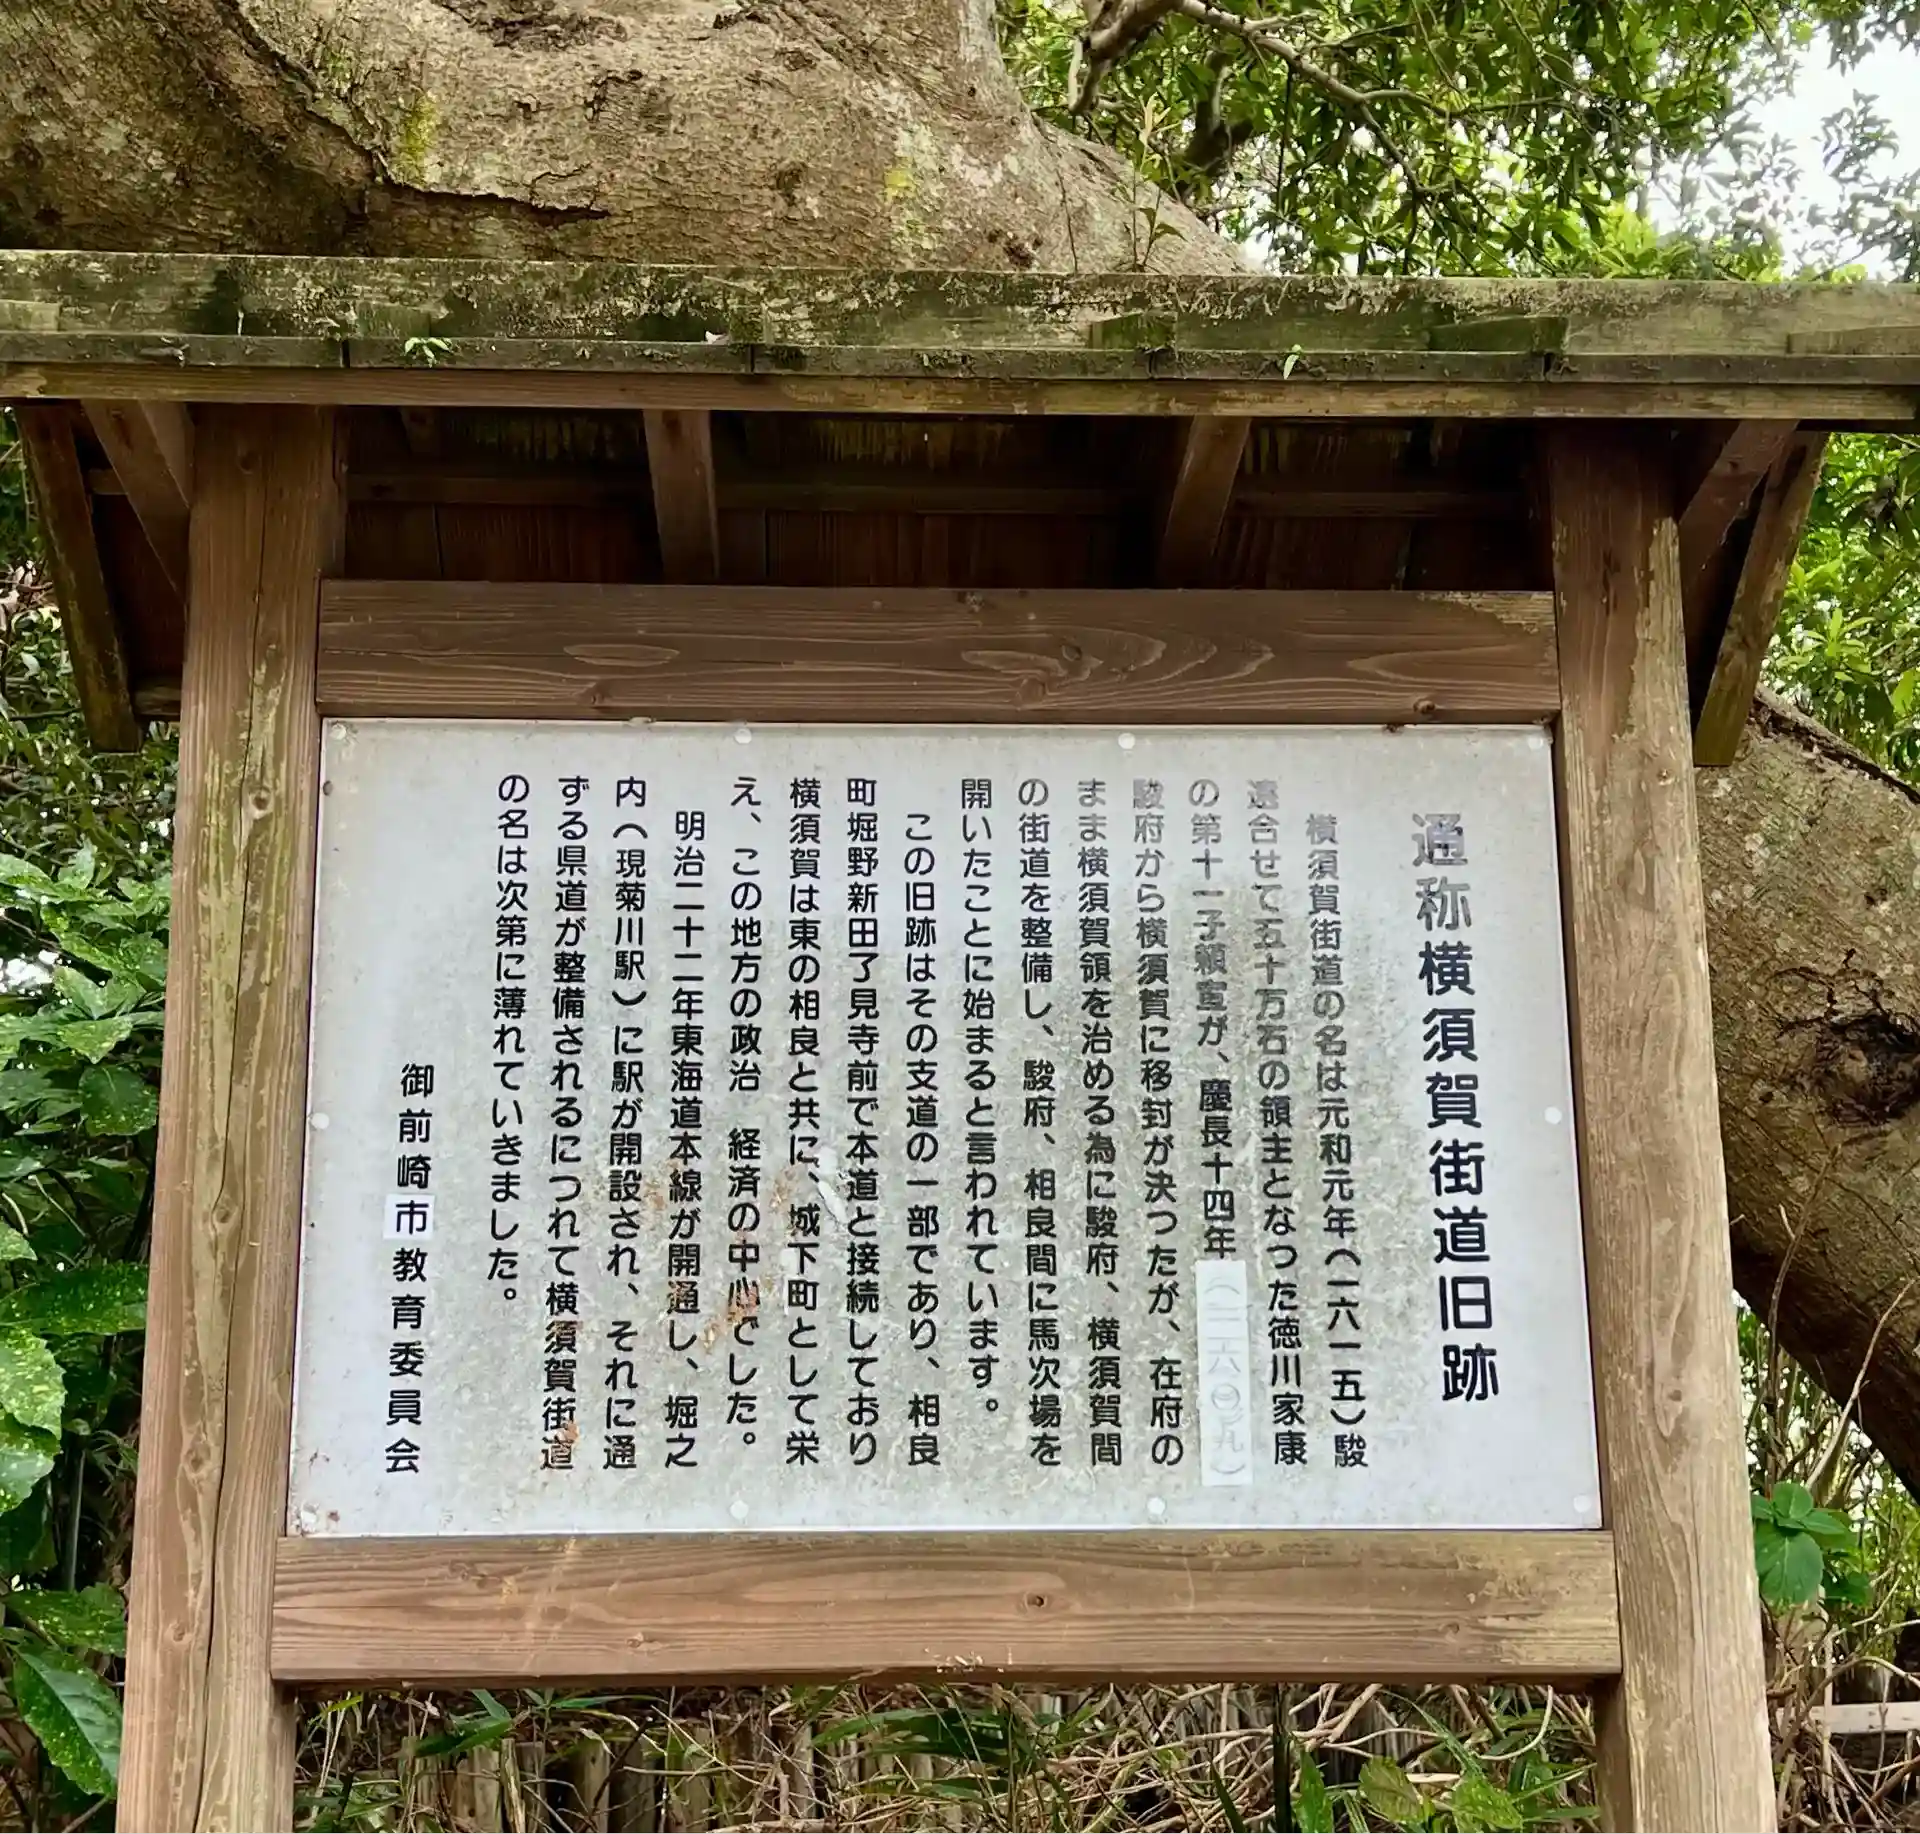 通称横須賀街道旧跡
横須賀街道の名は元和元年(一六一五)駿
遠合せて五十万石の領主となった徳川家康
の第十一子頼宣が、慶長十四年
駿府から横須賀に移封が決つたが、在府の
まま横須賀領を治める為に駿府、横須賀間
の街道を整備し、駿府、相良間に馬次場を
開いたことに始まると言われています。
この旧跡はその支道の一部であり、相良
町堀野新田了見寺前で本道と接続しており
横須賀は東の相良と共に、城下町として栄
え、この地方の政治 経済の中心でした。
明治二十二年東海道本線が開通し、堀之
内(現菊川駅)に駅が開設され、それに通
ずる県道が整備されるにつれて横須賀街道
の名は次第に薄れていきました。
御前崎市教育委員会